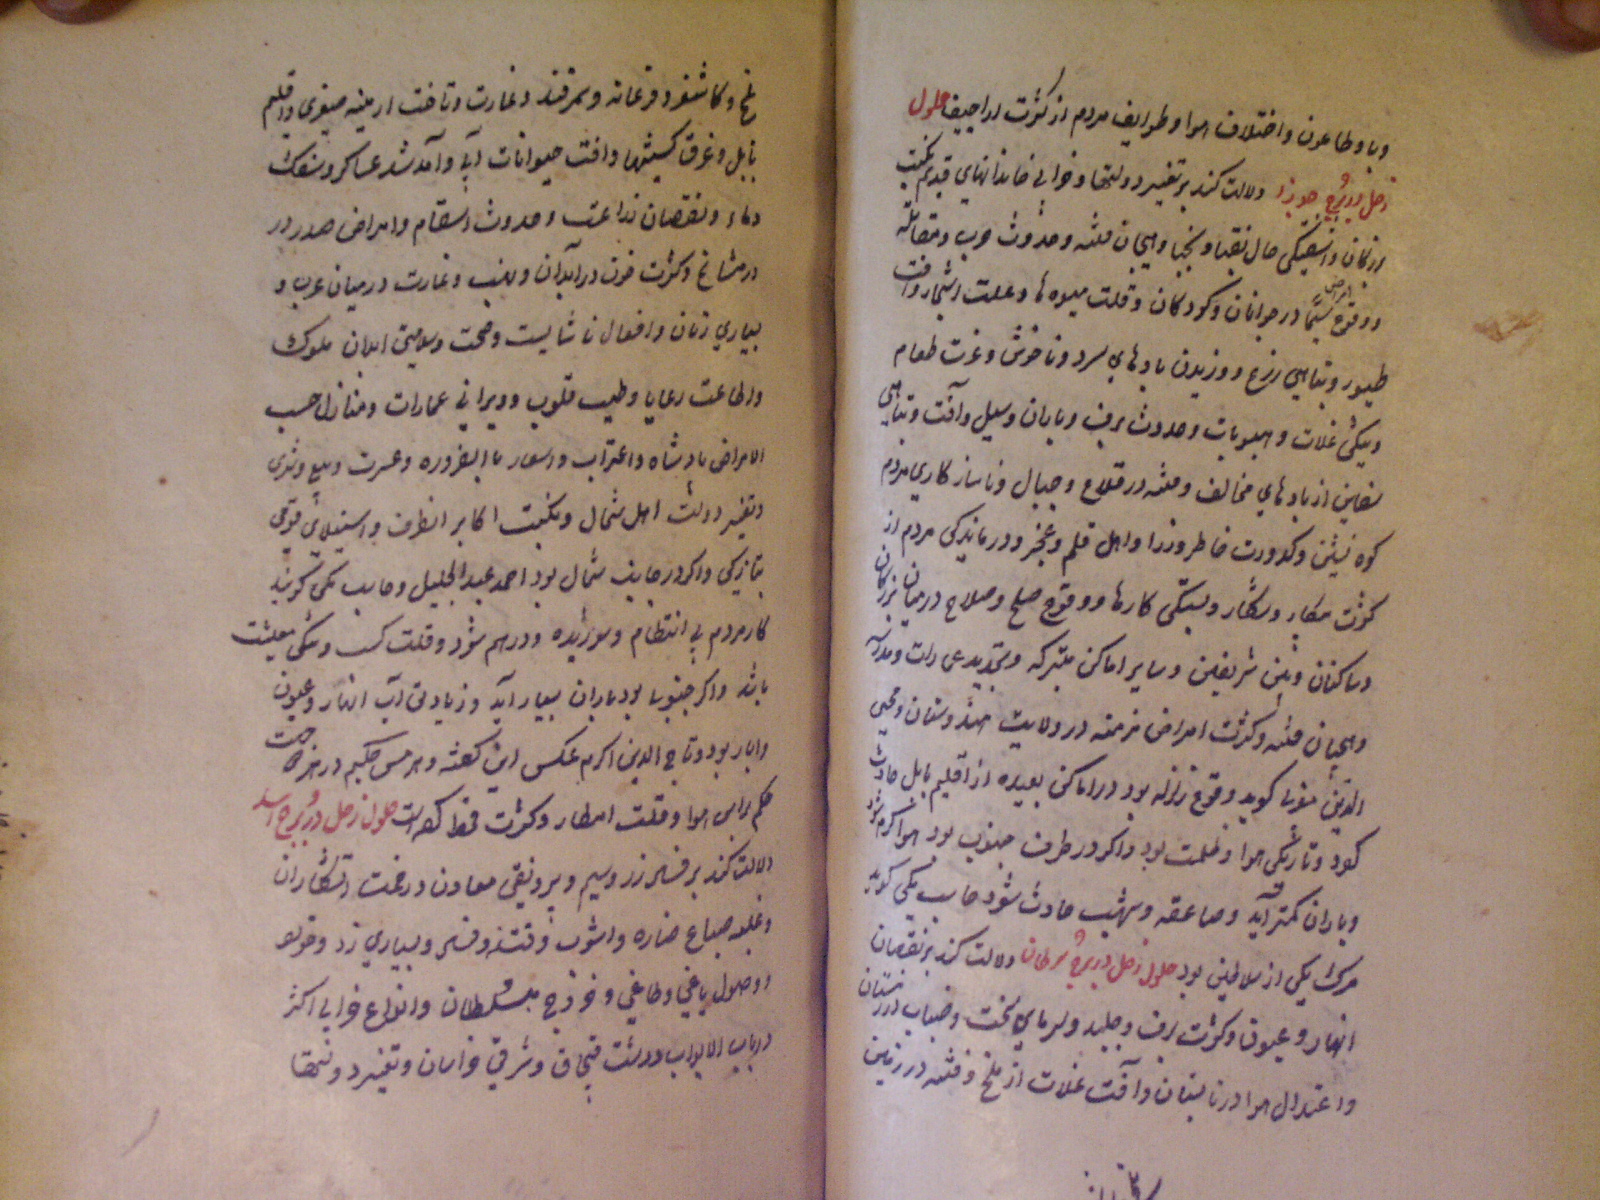 وبا و طاعون و اختلاف هوا و طوایف مردم از کثرت اراجیف حلول
زحل در برج جوزا دلالت کند بر تغییر دولتها و خرابی خاندانهای قدیم و نکبت
بزرگان و آشفتگی حال نقبا و نجبا و هیجان فتنه و حدوث حرب و مقاتله
و وقوع امراض سیما در جوانان و کودکان و قلت میوه ها و علت اشجار و آفت
طیور و تباهی زرع و وزیدن بادهای سرد و ناخوش و عزت طعام
و تنگی غلات و حبوبات و حدوث برف و باران و سیل و آفت و تباهی
سفاین از بادهای مخالف و فتنه در قلاع و جبال و ناسازکاری مردم
کوه نشین و کدورت خاطر وزرا و اهل قلم و عجز و درماندگی مردم از
کثرت مطار و بستگی کارها و وقوع صلح و صلاح درمیان بزرگان
و ساکنان شریفین و سایر اماکن متبرکه و تجدید عمارات و مدرسه
و هیجان فتنه و کثرت امراض مزمنه در ولایت هندوستان و محیی
الدین مغربی کوید وقوع زلزله بود در اماکن بعیده از اقلیم بابل حادث
کردد و تاریکی هوا و ظلمت بود و اکر در طرف جنوب بود هوا کرم شود
و باران کمتر آید و صاعقه و شهب حادث شود حاسب مکی کوید
مرک یکی از سلاطین بود حلول زحل در برج سرطان دلالت کند بر نقصان
انهار و عیون و کثرت برف و جلید و سرمای سخت و ضباب در زمستان
و اعتدال هوا در تابستان و آفت غلات از ملخ و فتنه در زمین
بلخ و کاشغر و فرغانه و سمرقند و غارت و تاخت ارمینه صغری و اقلیم
بابل و غرق کشتیها و آفت حیوانات آبی و آمد شد عساکر و سفک
دماء و نقصان زراعت و حدوث اسقام و امراض صدر در
در مشایخ و کثرت خون در ابدان و نهب و غارت درمیان عرب و
بیماری زنان و افعال ناشایست و صحت و سلامتی ابدان ملوک
و اطاعت رعایا و طیب قلوب و ویرانی عمارات و منازل حسب
الامر پادشاه و اغتراب و اسفار بالضروره و عسرت و بیع و شری
و تغییر دولت اهل شمال و نکبت اکابر انطرف و استیلای قومی
بتازکی و اکر در جانب شمال بود احمد عبد الجلیل و حاسب مکی کویند
کار مردم بی انتظام و شوریده و درهم شود و قلت کسب و تنکی معیشت
باشد و اکر جنوبی بود باران بسیار آید و زیادتی آب انهار و عیون
و ابار بود و تاج الدین اکرم عکس این کفته و هرمس حکیم در هر دو جهت
حکم براس هوا و قلت امطار و کثرت قحط کرده است حلول زحل در برج اسد
دلالت کند بر فساد زر و سیم و بیرونقی معادن و زحمت
و غلبه سباع ضاره و آشوب و فتنه و فساد و بسیاری دزد و خوف
و وصول یاغی و طاغی و خروج متسلطان و انواع خرابی اکثر
در باب الابواب و دشت قبچاق و شرقی خراسان و تغییر دولتها